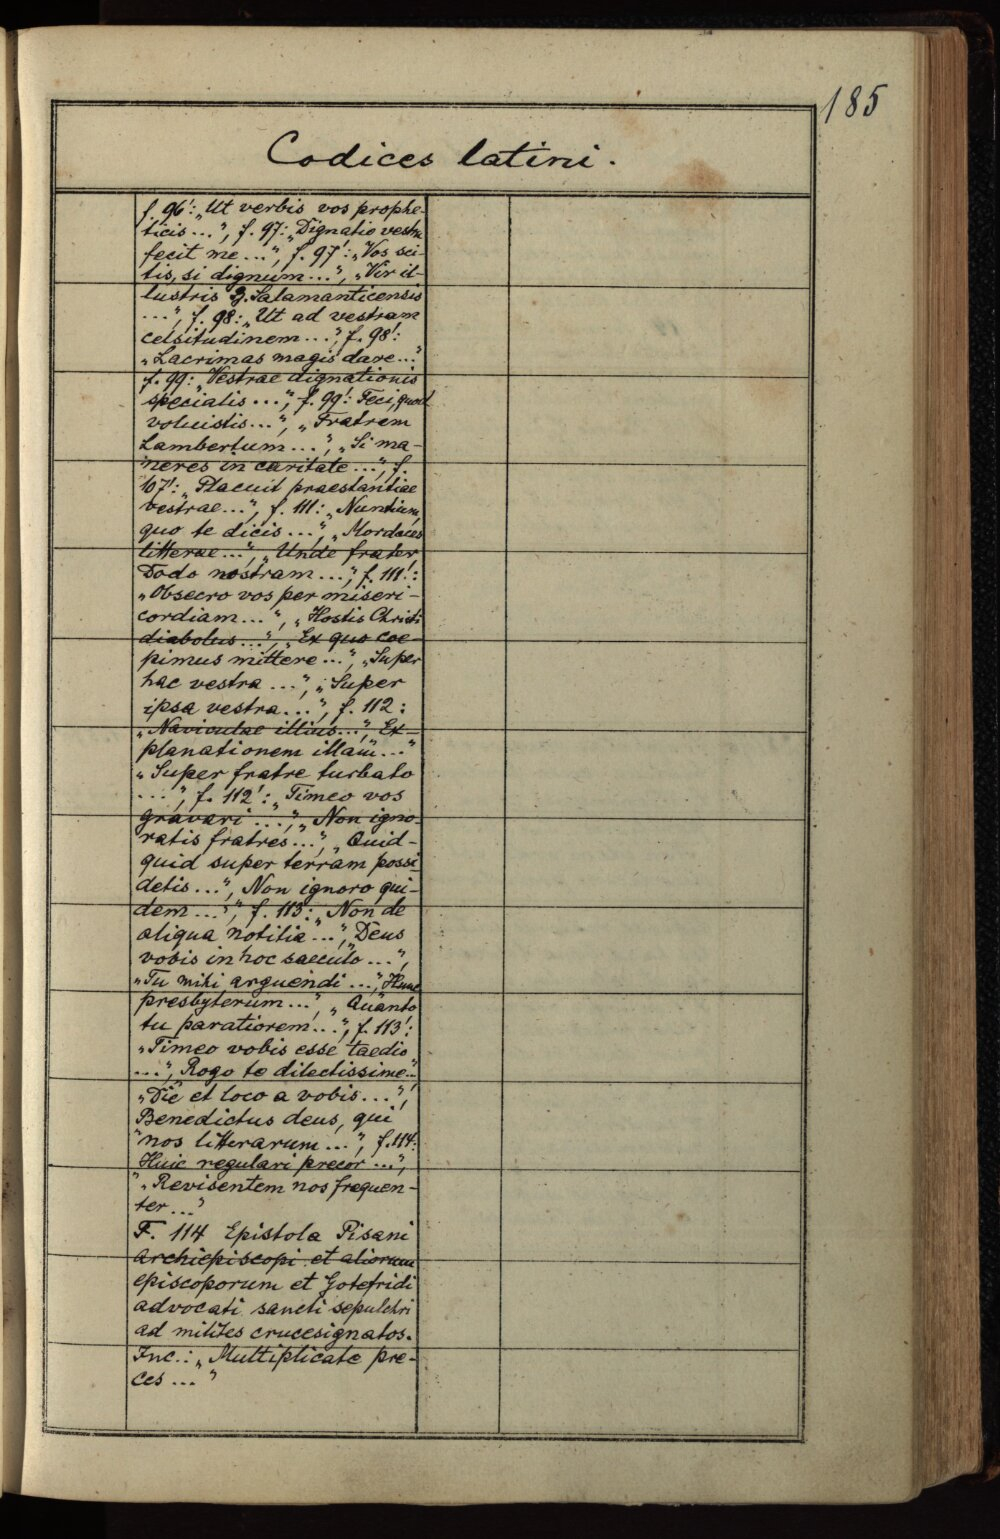 185
Codices latini.
f. 96': „Ut verbis vos prophe-
ticis ...", f. 97: „Dignatio vestra
fecit me ...", f. 97': „Vos sci-
tis, si dignum ...", „Vir il-
lustris G. Salamanticensis
...", f. 98: „Ut ad vestram
celsitudinem ...", f. 98':
„Lacrimas magis dare ..."
f. 99: „Vestrae dignationis
specialis ...", f. 99': Feci, quod
voluistis ...", „Fratrem
Lambertum ...", „Si ma-
neres in caritate ...", f.
107': „Placuit praestantiae
vestrae ...", f. 111: „Nuntium,
quo te dicis ...", „Mordaces
litterae ...", „Unde frater
Dodo nostram ...", f. 111':
„Obsecro vos per miseri-
cordiam ...", „Hostis Christi
diabolus ...", „Ex quo coe-
pimus mittere ...", „Super
hac vestra ...", „Super
ipsa vestra ...", f. 112:
„Naviculae illius ...", „Ex-
planationem illam ..."
„Super fratre turbato
...", f. 112': „Timeo vos
gravari ...", „Non igno-
ratis fratres ...", „Quid-
quid super terram possi-
detis ...", „Non ignoro qui-
dem ...", f. 113: „Non de
aliqua notitia ...", „Deus
vobis in hoc saeculo ...",
„Tu mihi arguendi ...", „Hunc
presbyterum ...", „Quanto
tu paratiorem ...", f. 113':
„Timeo vobis esse taedio
...", „Rogo te dilectissime ..."
„Die et loco a vobis ...",
Benedictus deus, qui
nos litterarum ...", f. 114:
Huic regulari precor ...",
„Revisentem nos frequen-
ter ..."
F. 114 Epistola Pisani
archiepiscopi et aliorum
episcoporum et Gotefridi
advocati sancti sepulchri
ad milites crucesignatos.
Inc.: „Multiplicate pre-
ces ..."